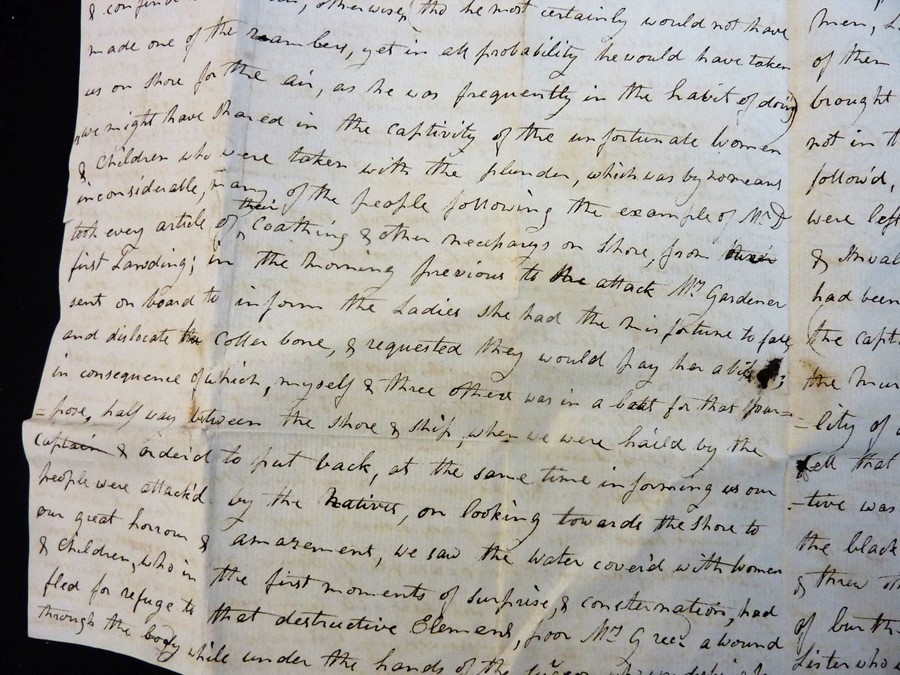 otherwise, tho he most certainly would not have
made one of the number, yet in all probability he would have taken
us on shore for the air, as he was frequently in the habit of doing
we might have shared in the captivity of the unfortunate women
& Children who were taken with the plunder, which was by no means
inconsiderable, many of the people following the example of Mr D
took every article of their Cloathing & other necessarys on shore, from
first Landing; in the morning previous to the attack Mrs Gardener
sent on board to inform the Ladies she had the misfortune to fall
and dislocate the Coller bone, & requested they would pay her a
in consequence of which, myself & three others was in a boat for that pur=
=pose, half way between the shore & ship, when we were hail'd by the
Captain & order'd to put back, at the same time informing us our
people were attack'd by the Natives, on looking towards the shore to
our great horrour & amazement, we saw the water cover'd with women
& Children, who in the first moments of surprise, & consternation, had
fled for refuge to that destructive Element, poor Mrs a wound
through the body while under the hands of the
Men,
of them
brought
not in
follow'd,
were left
&
had been
the
the
=lity of
fell that
=tive was
the black
& threw
of
Sister who